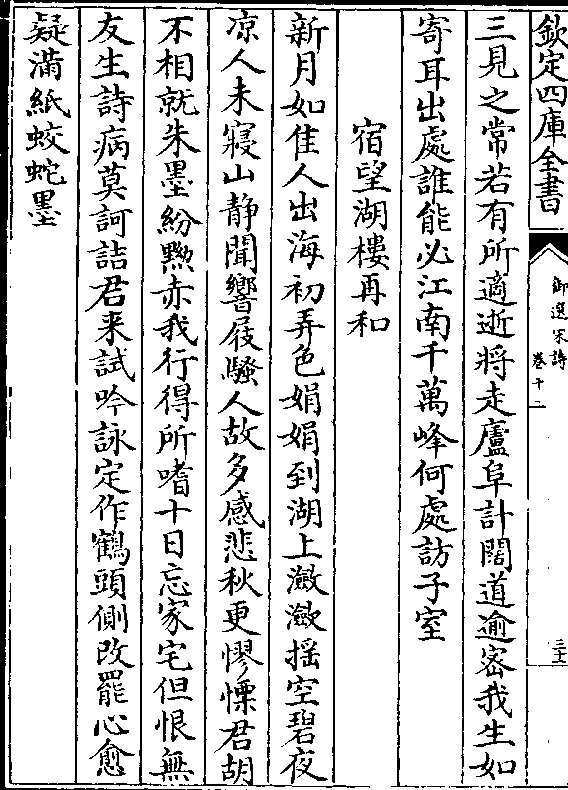 欽定四庫全書
御選宋詩
卷十二
三見之常若有所適逝將走廬阜計闊道逾宻我生如
寄耳出處誰能必江南千萬峰何處訪子室
宿望湖樓再和
新月如佳人出海初弄色娟娟到湖上瀲瀲揺空碧夜
凉人未寢山静聞響屐騷人故多感悲秋更憀慄君胡
不相就朱墨紛黝赤我行得所嗜十日忘家宅但恨無
友生詩病莫訶詰君来試吟詠定作鶴頭側改罷心愈
疑滿紙蛟蛇墨